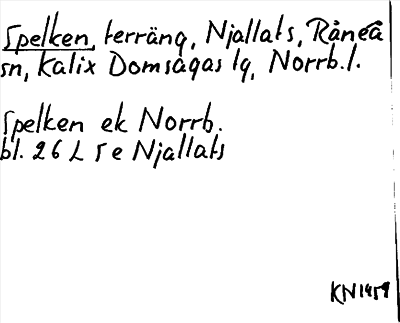 Spelken, terräng, Njallats, Råneå
sn, Kalix Domsagas lg, Norrb.l.
Spelken ek Norrb.
bl. 26 L 5 e Njallats
KN 1959